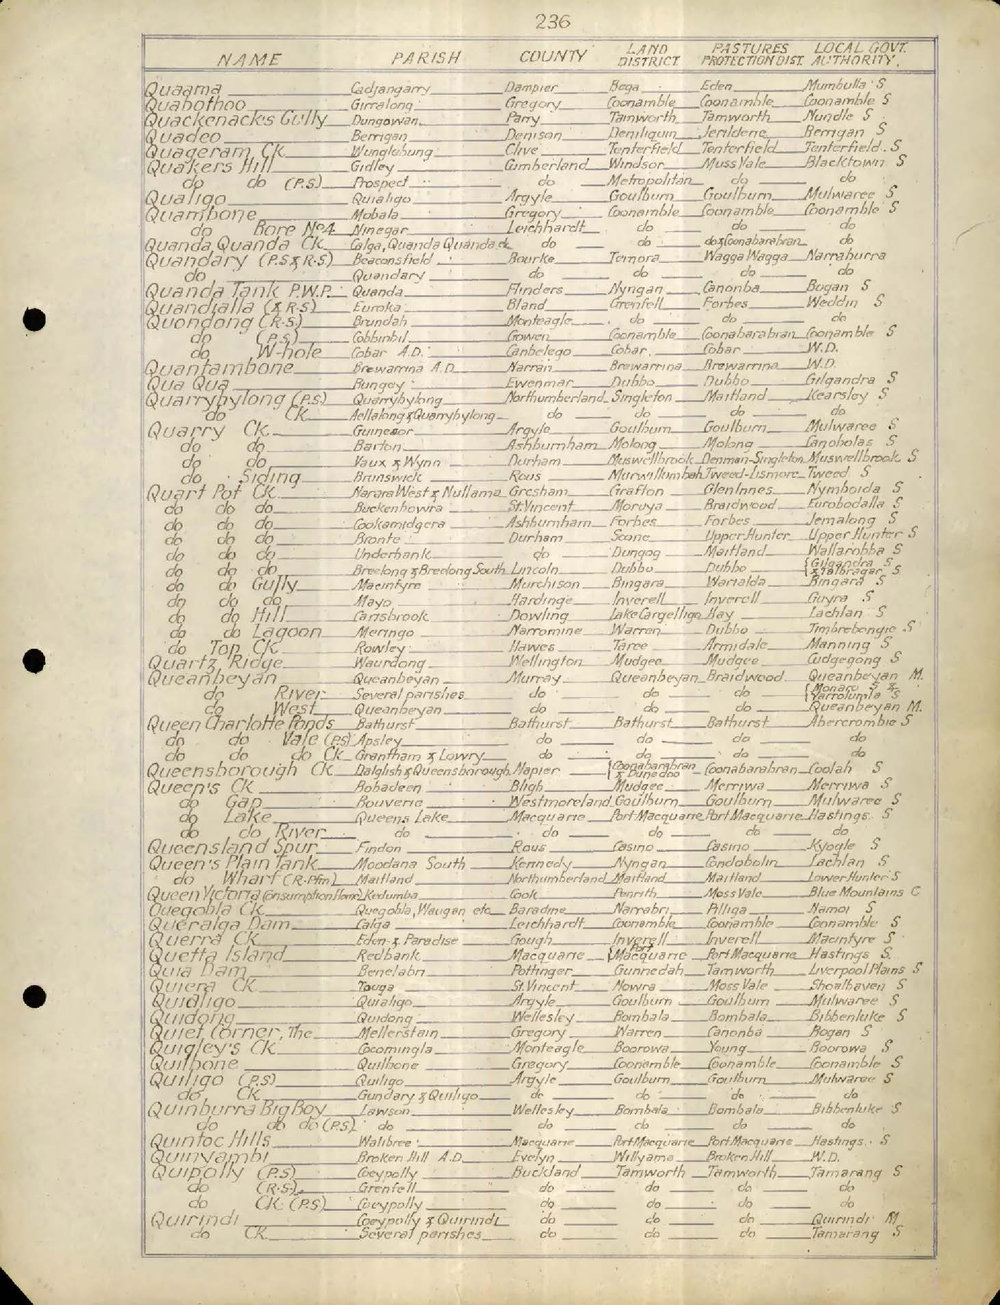 236
NAME PARISH COUNTY LAND DISTRICT PASTURES PROTECTION DIST. LOCAL GOVT. AUTHORITY.
Quaama Cadjangarry Dampier Bega Eden Mumbulla S
Quabothoo Girralong Gregory Coonamble Coonamble Coonamble S
Quackenacks Gully Dungowan Parry Tamworth Tamworth Nundle S
Quadeo Berrigan Denison Deniliquin Jerilderie Berrigan S
Quageram CK Wunglebung Clive Tenterfield Tenterfield Tenterfield S
Quakers Hill Gidley Cumberland Windsor Moss Vale Blacktown S
do do (P.S) Prospect do Metropolitan do do
Qualigo Quialigo Argyle Goulburn Goulburn Mulwaree S
Quambone Mobala Gregory Coonamble Coonamble Coonamble S
do Bore No4 Ninegar Leichhardt do do do
Quanda Quanda CK Calga, Quanda Quanda &c do do do & Coonabarabran do
Quandary (P.S & R.S) Beaconsfield Bourke Temora Wagga Wagga Narraburra
do Quandary do do do do
Quanda Tank P.W.P. Quanda Flinders Nyngan Canonba Bogan S
Quandialla (& R.S) Euroka Bland Grenfell Forbes Weddin S
Quondong (R.S) Brundah Monteagle do do do
do (P.S) Cobbinbil Gowen Coonamble Coonabarabran Coonamble S
do W-hole Cobar A.D. Canbelego Cobar Cobar W.D.
Quantambone Brewarrina A.D. Narran Brewarrina Brewarrina W.D.
Qua Qua Bungey Ewenmar Dubbo Dubbo Gilgandra S
Quarrybylong (P.S) Quarrybylong Northumberland Singleton Maitland Kearsley S
do CK Aellalong & Quarrybylong do do do do
Quarry CK Guineror Argyle Goulburn Goulburn Mulwaree S
do do Barton Ashburnham Molong Molong Canobolas S
do do Vaux & Wynn Durham Muswellbrook Denman-Singleton Muswellbrook S
do Siding Brunswick Rous Murwillumbah Tweed-Lismore Tweed S
Quart Pot CK Narara West & Nullama Gresham Grafton Glen Innes Nymboida S
do do do Buckenbowra St. Vincent Moruya Braidwood Eurobodalla S
do do do Cookamidgera Ashburnham Forbes Forbes Jemalong S
do do do Bronte Durham Scone Upper Hunter Upper Hunter S
do do do Underbank do Dungog Maitland Wallarobba S
do do do Breelong & Breelong South Lincoln Dubbo Dubbo {Gilgandra S & Talbragar S
do do Gully Macintyre Murchison Bingara Warialda Bingara S
do do do Mayo Hardinge Inverell Inverell Guyra S
do do Hill Carisbrook Dowling Lake Cargelligo Hay Lachlan S
do do Lagoon Meringo Narromine Warren Dubbo Timbrebongie S
do Top CK Rowley Hawes Taree Armidale Manning S
Quartz Ridge Waurdong Wellington Mudgee Mudgee Cudgegong S
Queanbeyan Queanbeyan Murray Queanbeyan Braidwood Queanbeyan M.
do River Several parishes do do do {Monaro S & Yarrolumla S
do West Queanbeyan do do do Queanbeyan M.
Queen Charlotte Ponds Bathurst Bathurst Bathurst Bathurst Abercrombie S
do do Vale (P.S) Apsley do do do do
do do do CK Grantham & Lowry do do do do
Queensborough CK Dalglish & Queensborough Napier {Coonabarabran & Dunedoo Coonabarabran Coolah S
Queen's CK Bobadeen Bligh Mudgee Merriwa Merriwa S
do Gap Bouverie Westmoreland Goulburn Goulburn Mulwaree S
do Lake Queens Lake Macquarie Port Macquarie Port Macquarie Hastings S
do do River do do do do do
Queensland Spur Findon Rous Casino Casino Kyogle S
Queen's Plain Tank Moodana South Kennedy Nyngan Condobolin Lachlan S
do Wharf (R.Pfm) Maitland Northumberland Maitland Maitland Lower Hunter S
Queen Victoria (Consumption Home) Kedumba Cook Penrith Moss Vale Blue Mountains C
Quegobla CK Quegobla, Waugan etc Baradine Narrabri Pilliga Namoi S
Queralga Dam Calga Leichhardt Coonamble Coonamble Coonamble S
Querra CK Eden & Paradise Gough Inverell Inverell Macintyre S
Quetta Island Redbank Macquarie {Port Macquarie Port Macquarie Hastings S.
Quia Dam Benelabri Pottinger Gunnedah Tamworth Liverpool Plains S
Quiera CK Touga St. Vincent Nowra Moss Vale Shoalhaven S
Quialigo Quialigo Argyle Goulburn Goulburn Mulwaree S
Quidong Quidong Wellesley Bombala Bombala Bibbenluke S
Quiet Corner, The Mellerstain Gregory Warren Canonba Bogan S
Quigley's CK Cocomingla Monteagle Boorowa Young Boorowa S
Quilbone Quilbone Gregory Coonamble Coonamble Coonamble S
Quiligo (P.S) Quiligo Argyle Goulburn Goulburn Mulwaree S
do CK Gundary & Quiligo do do do do
Quinburra Big Boy Lawson Wellesley Bombala Bombala Bibbenluke S
do do do (P.S) do do do do do
Quintoc Hills Walibree Macquarie Port Macquarie Port Macquarie Hastings S
Quinyambi Broken Hill A.D Evelyn Willyama Broken Hill W.D.
Quipolly (P.S) Coeypolly Buckland Tamworth Tamworth Tamarang S
do (R.S) Grenfell do do do do
do CK (P.S) Coeypolly do do do do
Quirindi Coeypolly & Quirindi do do do Quirindi M
do CK Several parishes do do do Tamarang S